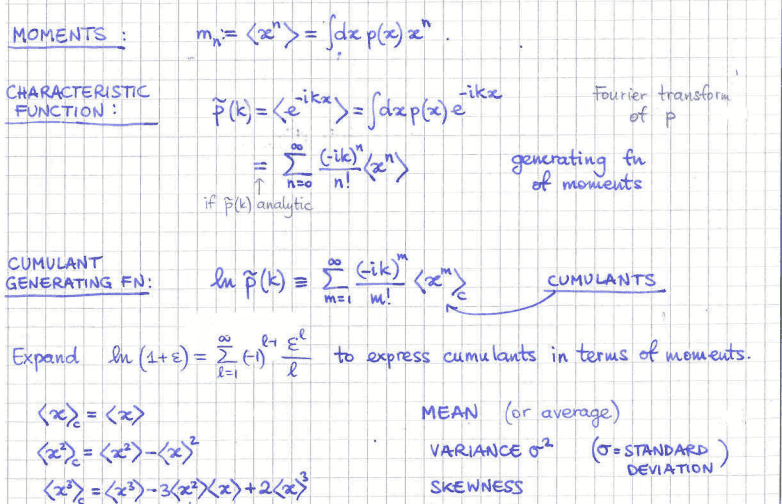 MOMENTS : mₙ := ⟨xⁿ⟩ = ∫dx p(x) xⁿ .
CHARACTERISTIC
FUNCTION : p̃(k) = ⟨e^{-ikx}⟩ = ∫dx p(x) e^{-ikx} Fourier transform
of p
= ∑_{n=0}^{∞} (-ik)ⁿ/n! ⟨xⁿ⟩ generating fn
of moments
↑
if p̃(k) analytic
CUMULANT
GENERATING FN: ln p̃(k) ≡ ∑_{m=1}^{∞} (-ik)^m/m! ⟨x^m⟩_c CUMULANTS
Expand ln (1+ε) = ∑_{l=1}^{∞} (-1)^{l-1} ε^l/l to express cumulants in terms of moments.
⟨x⟩_c = ⟨x⟩ MEAN (or average)
⟨x²⟩_c = ⟨x²⟩ - ⟨x⟩² VARIANCE σ² (σ = STANDARD
DEVIATION)
⟨x³⟩_c = ⟨x³⟩ - 3⟨x²⟩⟨x⟩ + 2⟨x⟩³ SKEWNESS